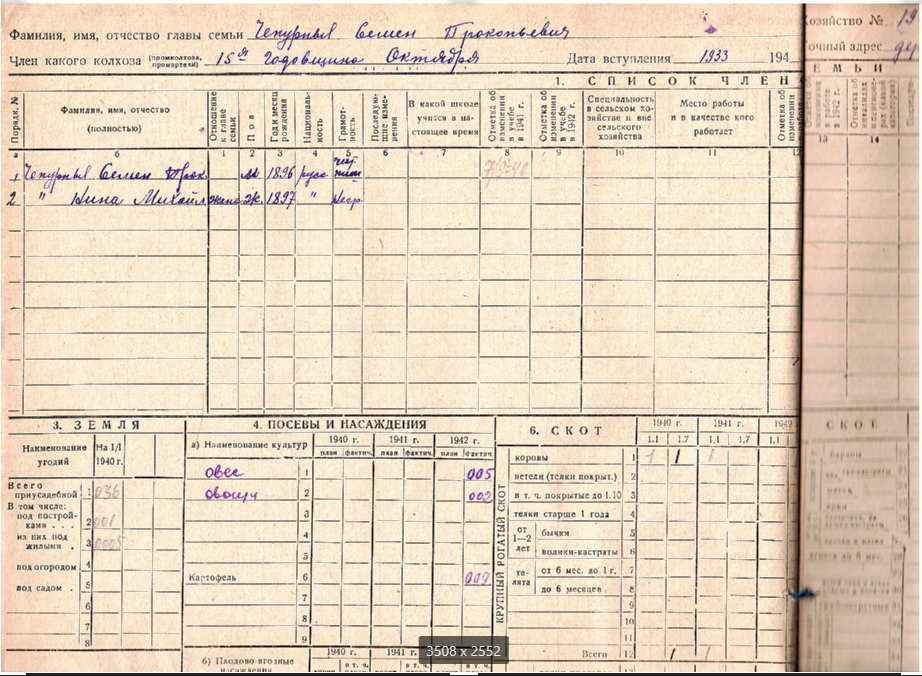 Хозяйство № 19
Фамилия, имя, отчество главы семьи Чепурный Семен Прокопьевич
Член какого колхоза (промколхоза, промартели) 15ая Годовщина Октября Дата вступления 1933 194
1. СПИСОК ЧЛЕНО
ЕМЬИ
Порядк. №
Фамилия, имя, отчество (полностью)
Отношение к главе семьи
Пол
Год и месяц рождения
Националь-ность
Грамот-ность
Последую-щие изме-нения
В какой школе учится в на-стоящее время
Отметка об изменении в учебе в 1941 г.
Отметка об изменении в учебе в 1942 г.
Специальность в сельском хо-зяйстве и вне сельского хозяйства
Место работы и в качестве кого работает
Отметка об изменении
а б 1 2 3 4 5 6 7 8 9 10 11 12 13 14
1 Чепурный Семен Прок. м 1896 русс
2 " Нина Михайл жена ж. 1897 " негр.
3. ЗЕМЛЯ
Наименование угодий На 1/I 1940 г.
Всего приусадебной 1 036
В том числе:
под построй-ками . . . 2 001
из них под жилыми . 3 0005
под огородом 4
под садом . 5
6
7
8
4. ПОСЕВЫ И НАСАЖДЕНИЯ
а) Наименование культур 1940 г. 1941 г. 1942 г.
план фактич. план фактич. план фактич.
овес 1 005
овощи 2 002
3
4
5
Картофель 6 009
7
8
9
б) Плодово-ягодные насаждения 1940 г. 1941 г.
в т. ч. в т. ч.
6. СКОТ
1940 г. 1941 г. 1942
1.1 1.7 1.1 1.7 1.1
КРУПНЫЙ РОГАТЫЙ СКОТ
коровы 1 1 1 1
нетели (телки покрыт.) 2
в т. ч. покрытые до 1.10 3
телки старше 1 года 4
от 1—2 лет
бычки 5
волики-кастраты 6
те-лята
от 6 мес. до 1 г. 7
до 6 месяцев 8
9
10
11
Всего 12 1 1
СКОТ
3508 x 2552